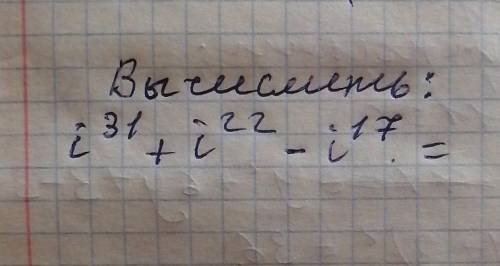 Вычислить:
i³¹ + i²² - i¹⁷. =